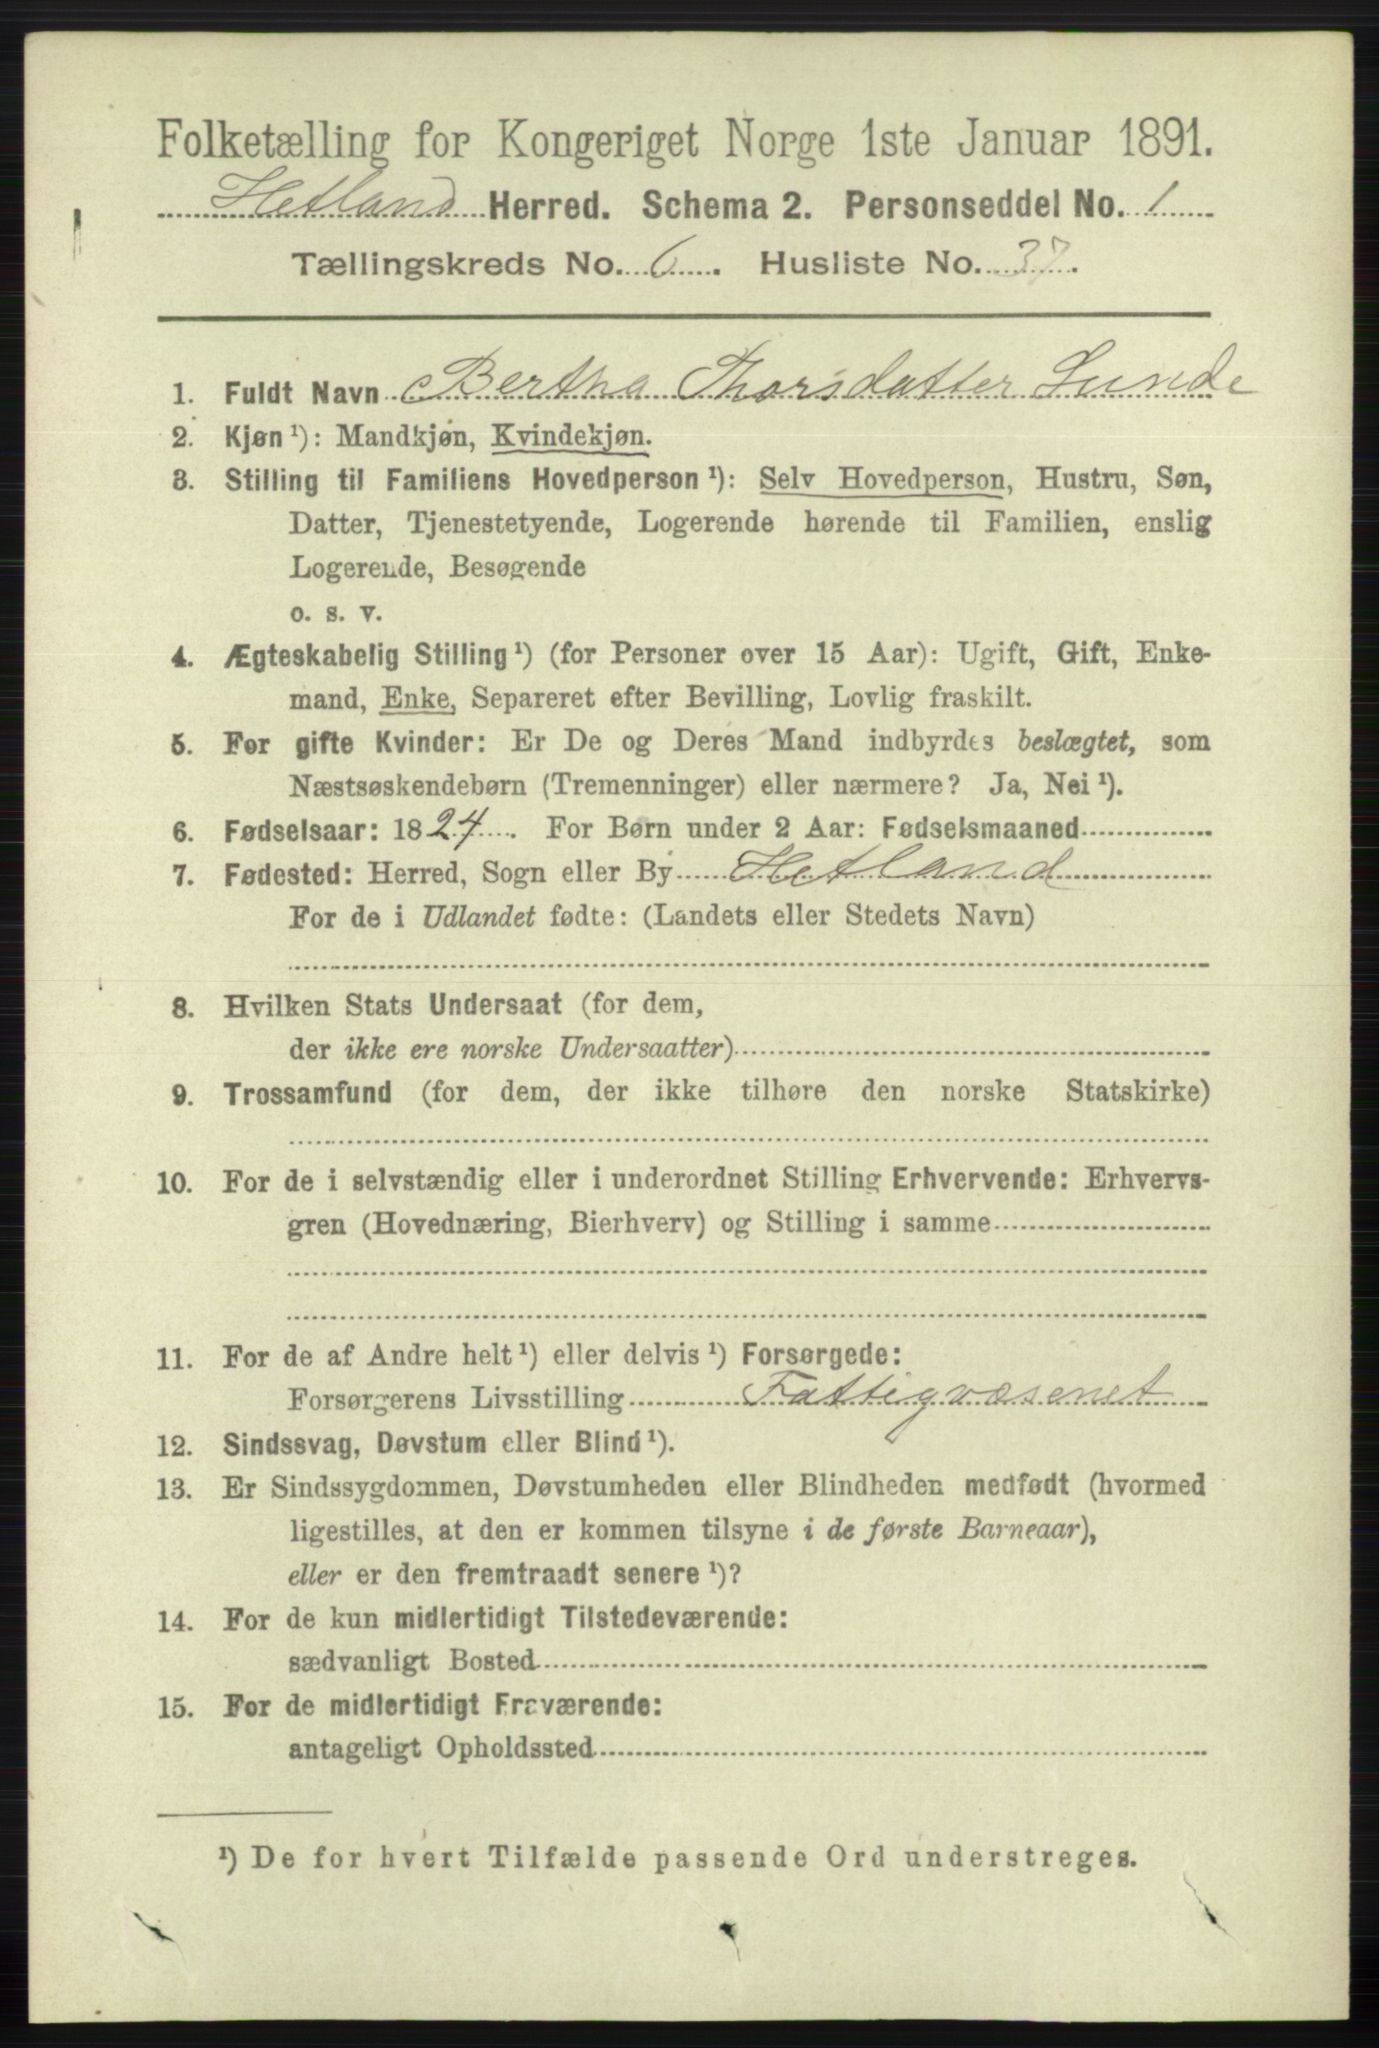 Folketælling for Kongeriget Norge 1ste Januar 1891.
Hetland Herred. Schema 2. Personseddel No. 1
Tællingskreds No. 6. Husliste No. 37.
1. Fuldt Navn Bertha Thorsdatter Lunde
2. Kjøn ¹): Mandkjøn, Kvindekjøn.
3. Stilling til Familiens Hovedperson ¹): Selv Hovedperson, Hustru, Søn,
Datter, Tjenestetyende, Logerende hørende til Familien, enslig
Logerende, Besøgende
o. s. v.
4. Ægteskabelig Stilling ¹) (for Personer over 15 Aar): Ugift, Gift, Enke-
mand, Enke, Separeret efter Bevilling, Lovlig fraskilt.
5. For gifte Kvinder: Er De og Deres Mand indbyrdes beslægtet, som
Næstsøskendebørn (Tremenninger) eller nærmere? Ja, Nei ¹).
6. Fødselsaar: 1824. For Børn under 2 Aar: Fødselsmaaned
7. Fødested: Herred, Sogn eller By Hetland
For de i Udlandet fødte: (Landets eller Stedets Navn)
8. Hvilken Stats Undersaat (for dem,
der ikke ere norske Undersaatter)
9. Trossamfund (for dem, der ikke tilhøre den norske Statskirke)
10. For de i selvstændig eller i underordnet Stilling Erhvervende: Erhvervs-
gren (Hovednæring, Bierhverv) og Stilling i samme
11. For de af Andre helt ¹) eller delvis ¹) Forsørgede:
Forsørgerens Livsstilling Fattigvæsenet
12. Sindssvag, Døvstum eller Blind ¹).
13. Er Sindssygdommen, Døvstumheden eller Blindheden medfødt (hvormed
ligestilles, at den er kommen tilsyne i de første Barneaar),
eller er den fremtraadt senere ¹)?
14. For de kun midlertidigt Tilstedeværende:
sædvanligt Bosted
15. For de midlertidigt Fraværende:
antageligt Opholdssted
¹) De for hvert Tilfælde passende Ord understreges.